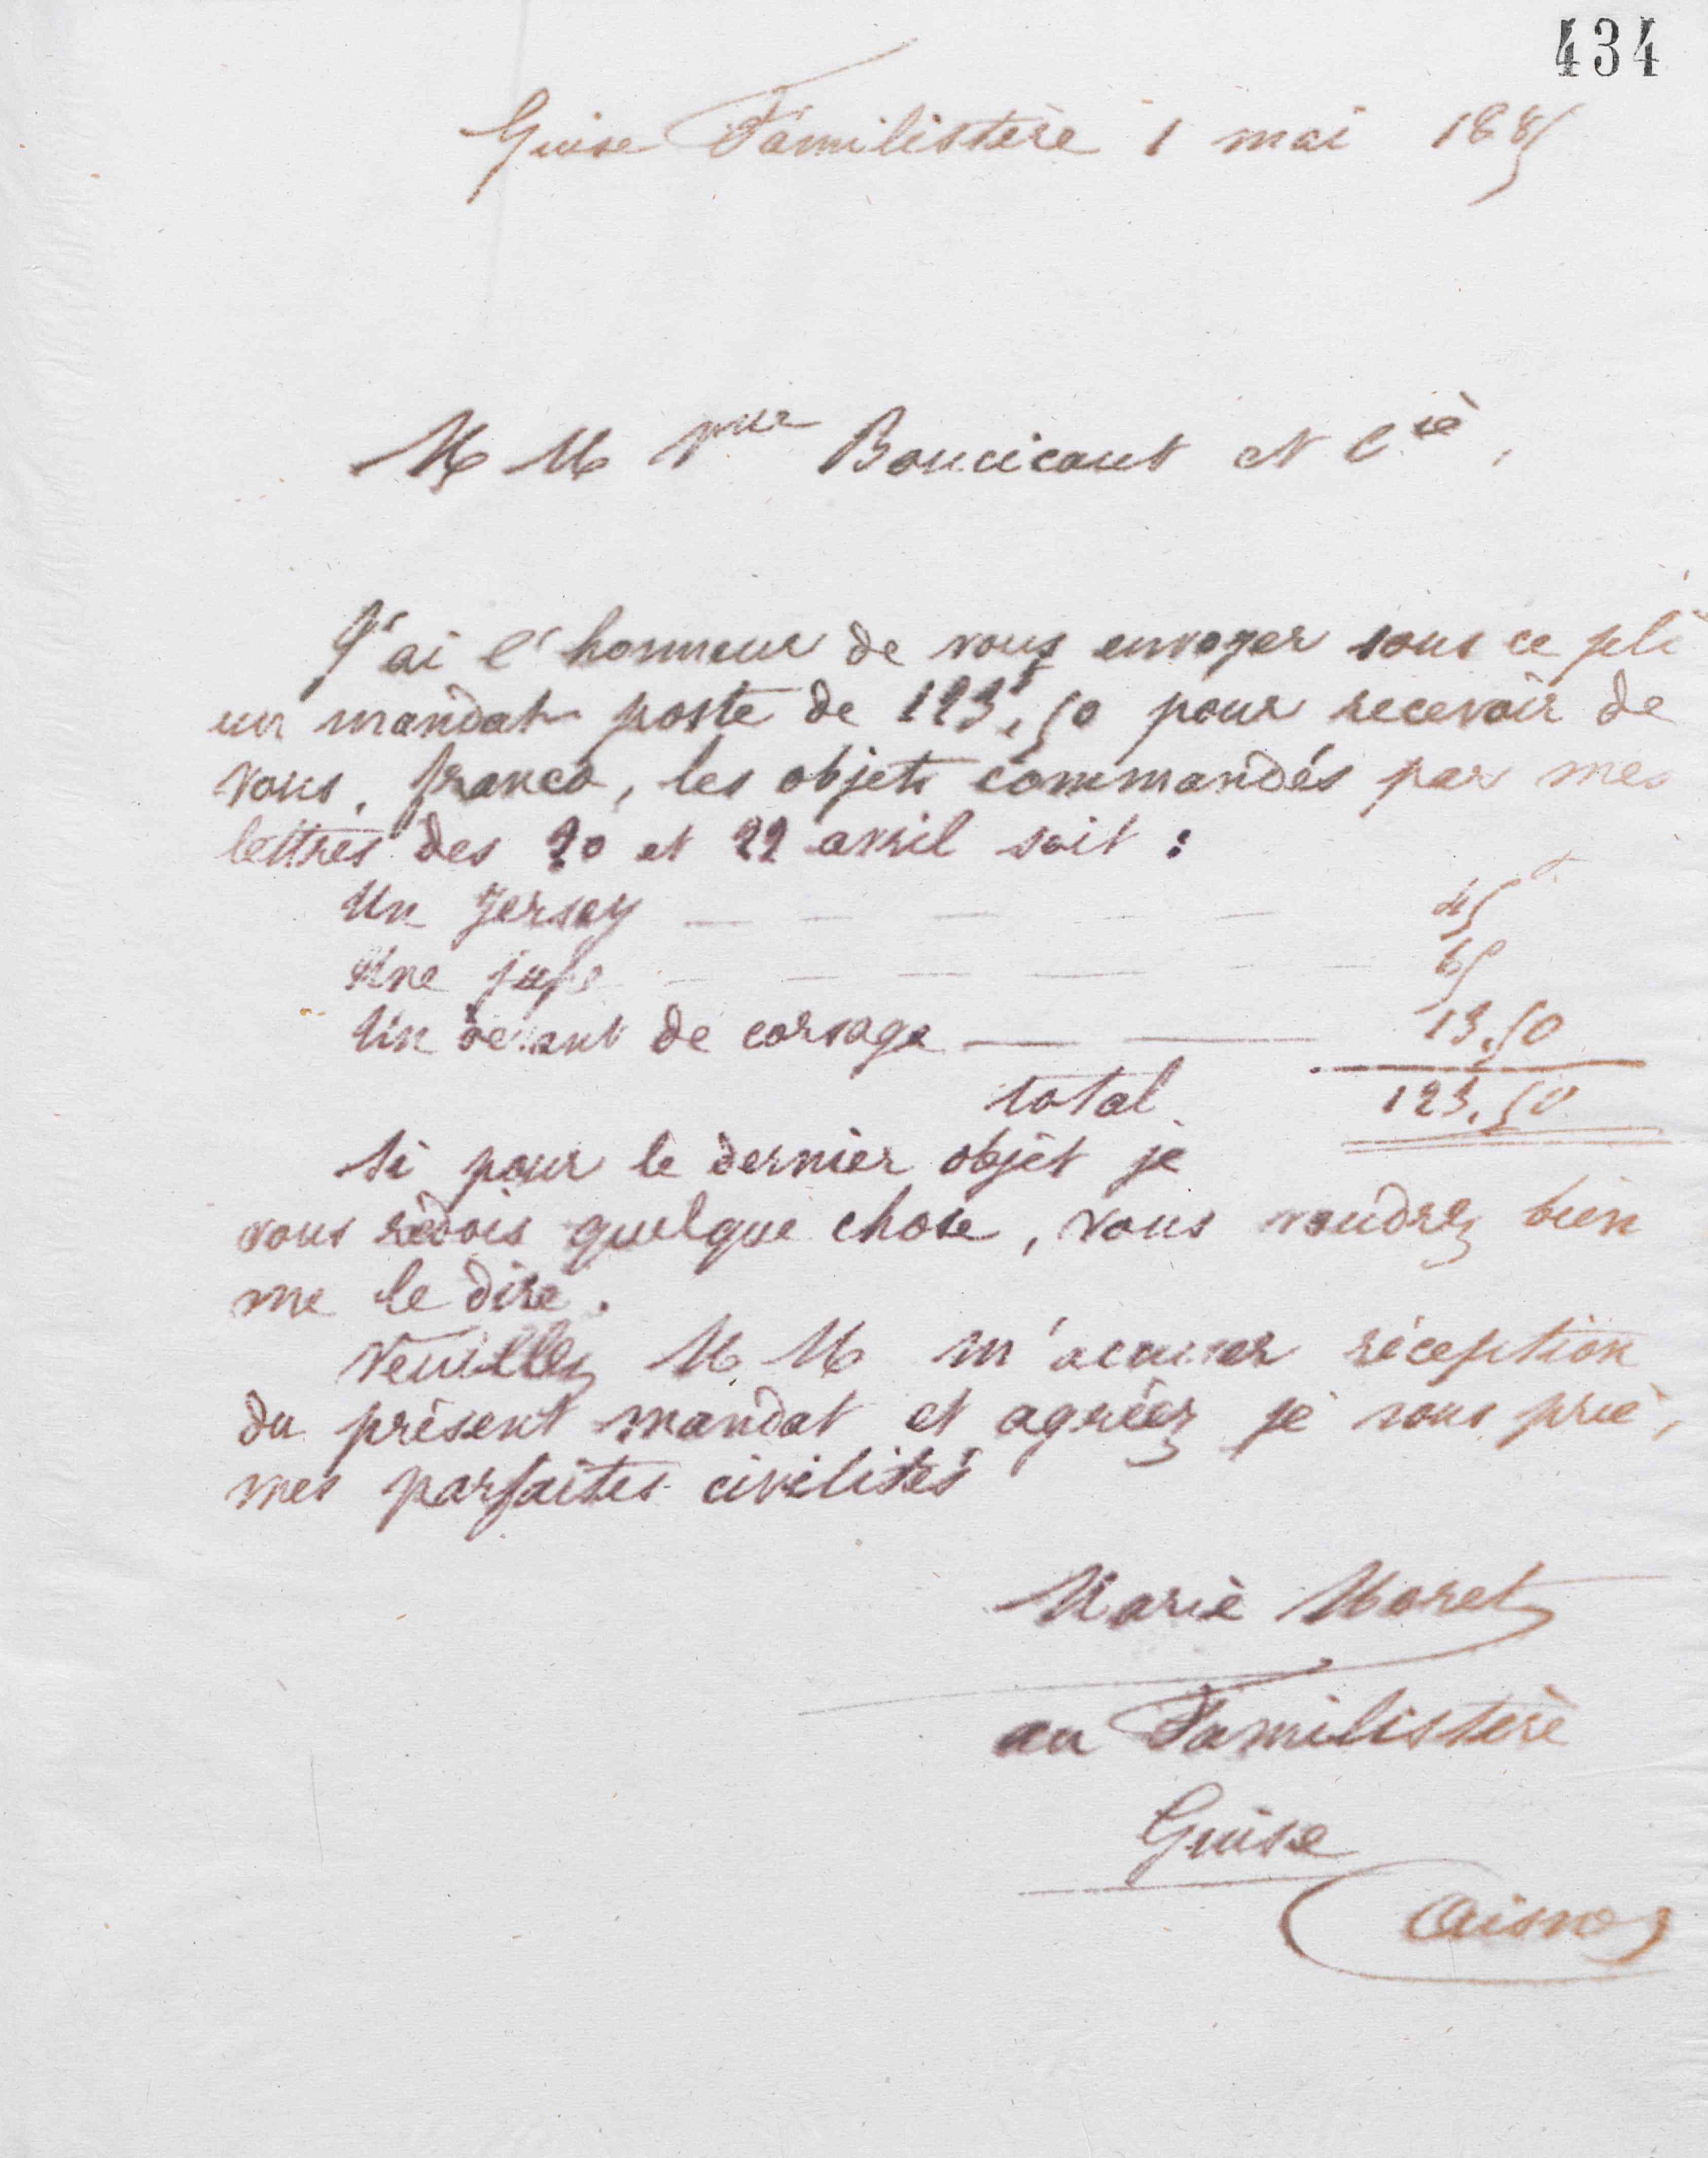 434
Guise Familistère 1 mai 1885
MM Vve Boucicaut et Cie,
J'ai l'honneur de vous envoyer sous ce pli
un mandat poste de 123f,50 pour recevoir de
vous, franco, les objets commandés par mes
lettres des 20 et 22 avril soit :
Un Jersey — — — — — 45f
Une jupe — — — — — — 65
Un devant de corsage — — 13,50
total 123,50
Si pour le dernier objet je
vous redois quelque chose, vous voudrez bien
me le dire.
Veuillez MM m'accuser réception
du présent mandat et agréez je vous prie,
mes parfaites civilités
Marie Moret
au Familistère
Guise
(Aisne)